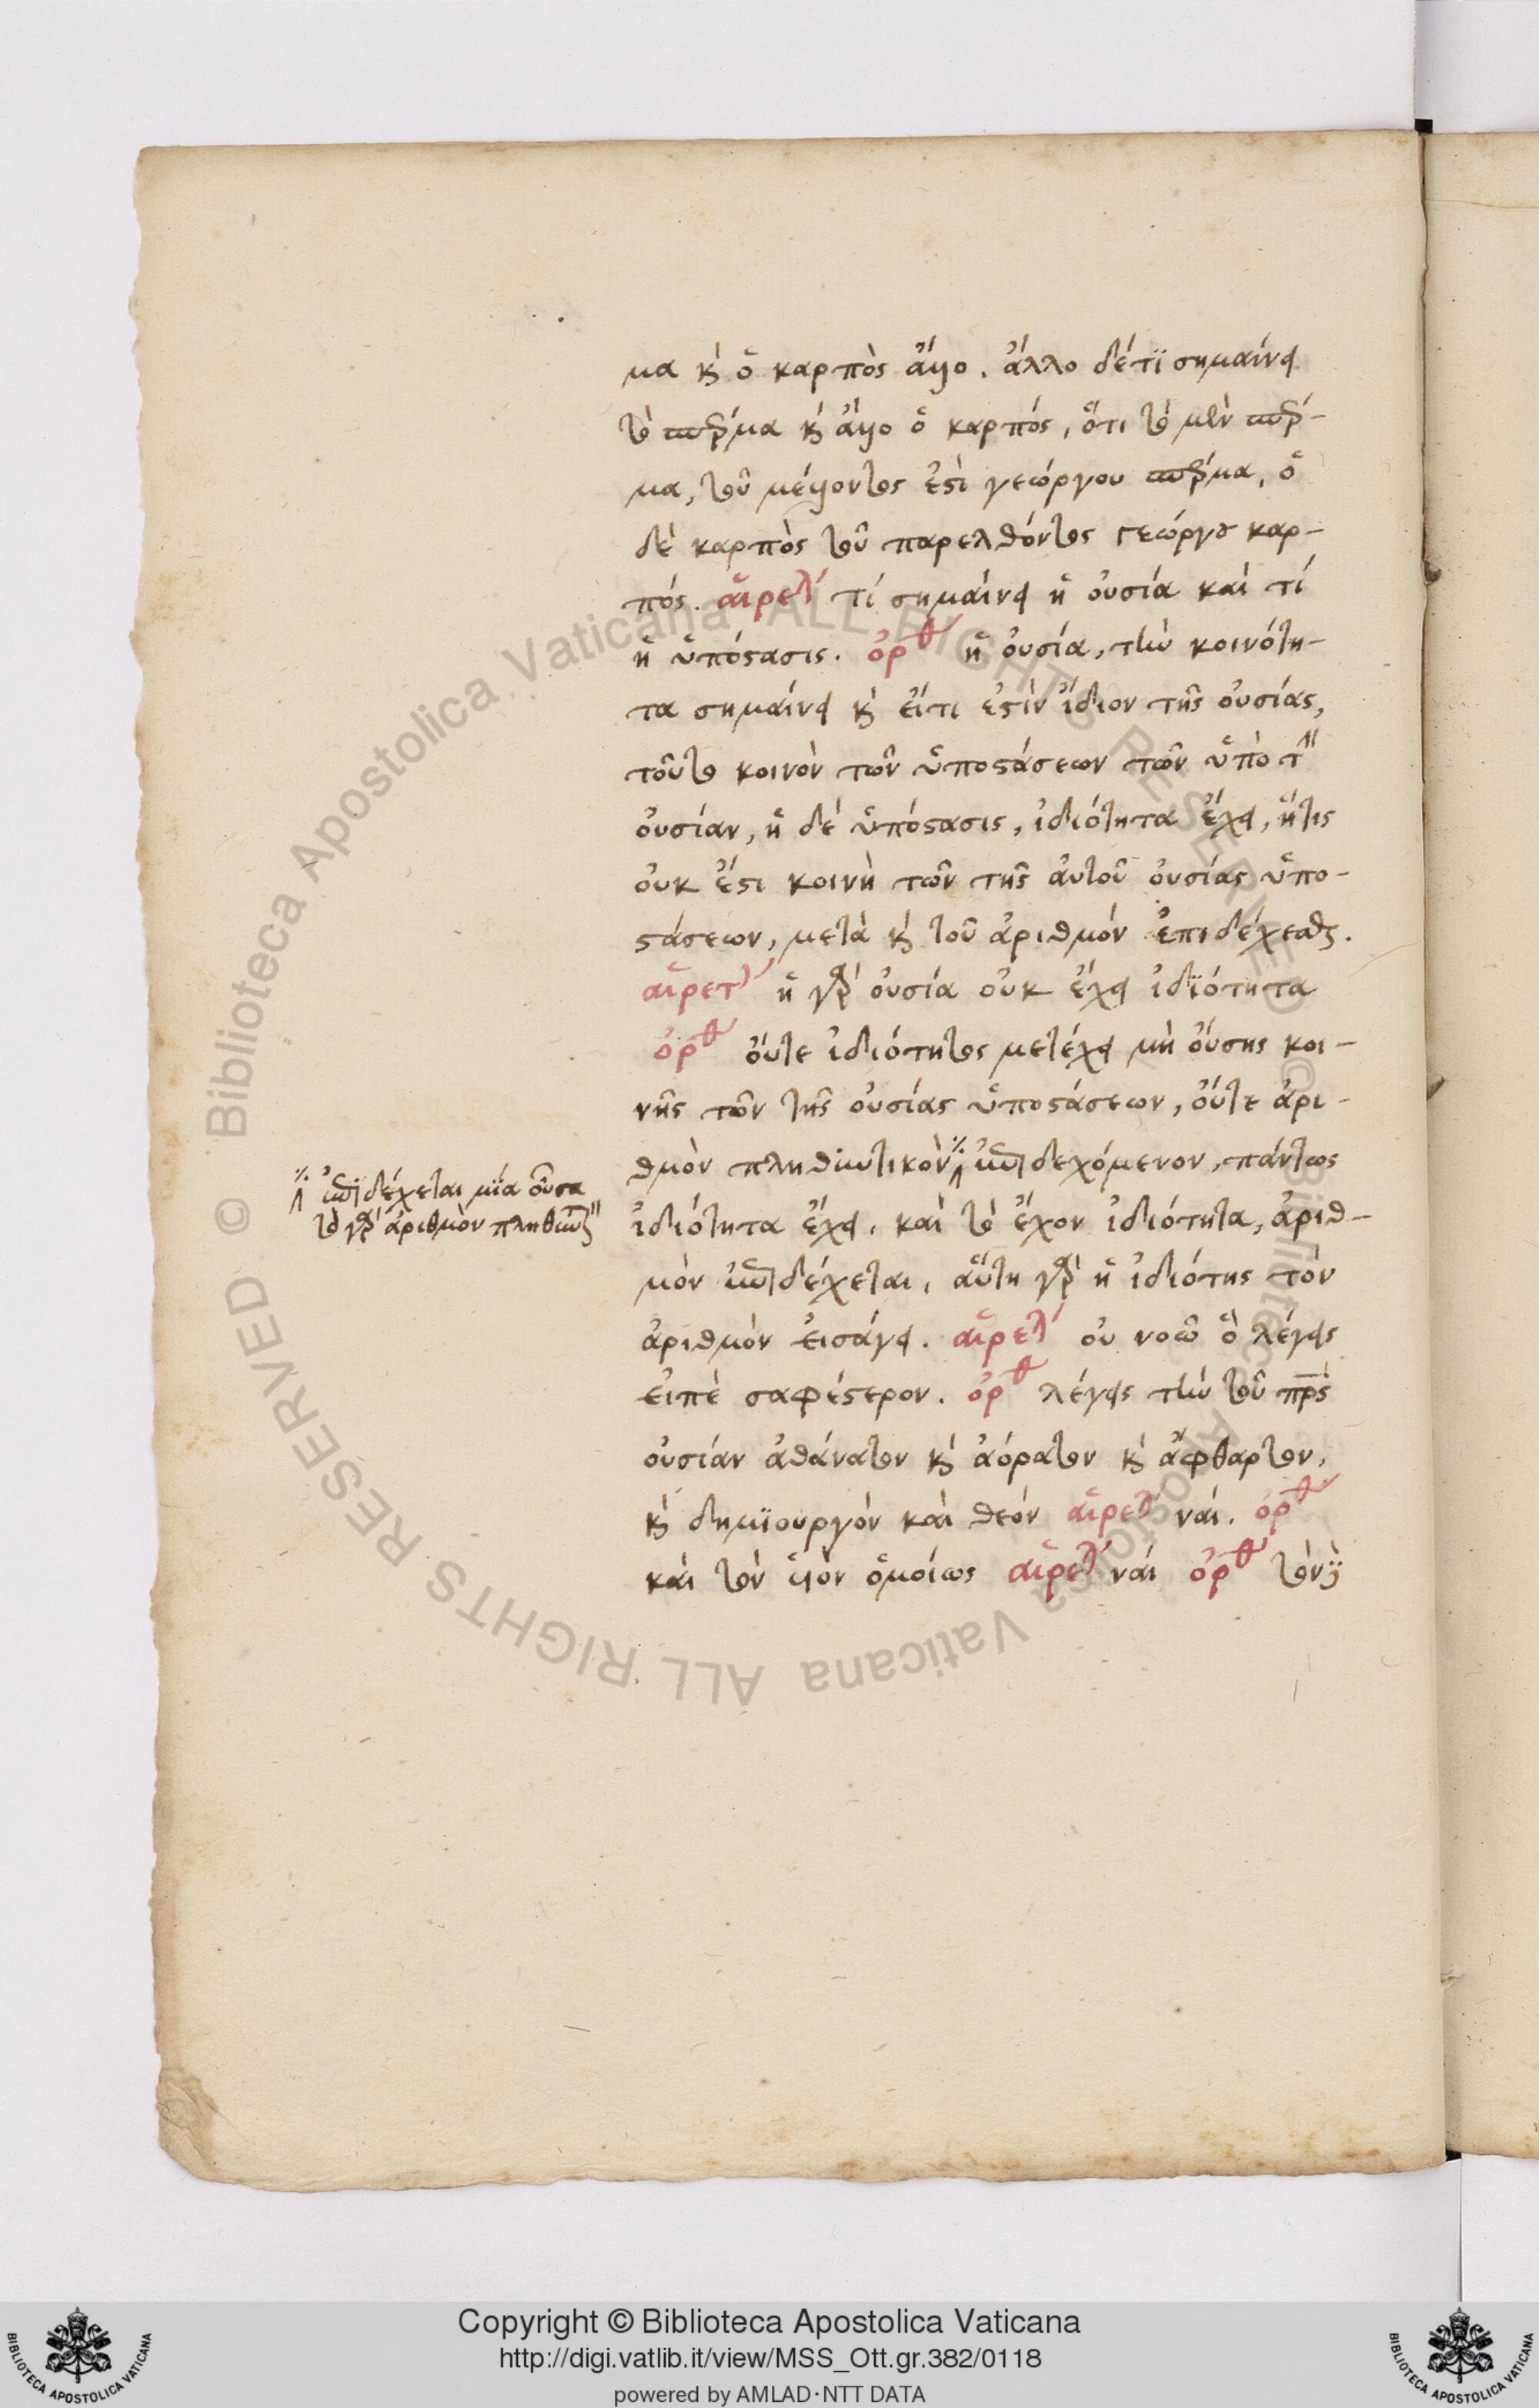 μα κ̀ ὁ καρπὸς ἄλλο. ἄλλο δέ τϊ σημαίνει
τὸ σπέρμα κ̀ ἄλλο ὁ καρπός, ὅτι τὸ μὲν σπέρ-
μα, τοῦ μέλλοντος ἐστὶ γεώργου σπέρμα, ὁ
δὲ καρπὸς τοῦ παρελθόντος γεώργου καρ-
πός. αἱρετ τί σημαίνει ἡ οὐσία καὶ τί
ἡ ὑπόστασις. ὀρθ ἡ οὐσία, τὴν κοινότη-
τα σημαίνει κ̀ εἴ τι ἐστὶν ἴδιον τῆς οὐσίας,
τοῦτο κοινὸν τῶν ὑποστάσεων τῶν ὑπὸ τὴν
οὐσίαν, ἡ δέ ὑπόστασις, ἰδιότητα ἔχει, ἥτις
οὐκ ἔστι κοινὴ τῶν τῆς αὐτοῦ οὐσίας ὑπο-
στάσεων, μετὰ κ̀ τοῦ ἀριθμόν ἐπιδέχεσθαι.
αἱρετ ἡ γὰρ οὐσία οὐκ ἔχει ἰδϊότητα
ὀρθ οὔτε ἰδιότητος μετέχει μὴ οὔσης κοι-
νῆς τῶν τῆς οὐσίας ὑποστάσεων, οὔτε ἀρι-
θμὸν πληθϋντικὸν ἐπιδεχόμενον, πάντως
ἰδιότητα ἔχει. καὶ τὸ ἔχον ἰδιότητα, ἀριθ-
μὸν ἐπιδέχεται, αὕτη γὰρ ἡ ἰδιότης τὸν
ἀριθμὸν εἰσάγει. αἱρετ οὐ νοῶ ὃ λέγεις
εἰπὲ σαφέστερον. ὀρθ λέγεις τὴν τοῦ πρς
οὐσίαν ἀθάνατον κ̀ ἀόρατον κ̀ ἄφθαρτον,
κ̀ δημϊουργόν καὶ θεόν αἱρετ ναί. ὀρθ
καὶ τὸν ὑιὸν ὁμοίως αἱρετ ναί ὀρθ
ἐπιδέχεται μϊα οὖσα
τὸ γὰρ ἀριθμὸν
Copyright © Biblioteca Apostolica Vaticana
http://digi.vatlib.it/view/MSS_Ott.gr.382/0118
powered by AMLAD·NTT DATA
BIBLIOTECA APOSTOLICA VATICANA
BIBLIOTECA APOSTOLICA VATICANA
© Biblioteca Apostolica Vaticana ALL RIGHTS RESERVED
© Biblioteca Apostolica Vaticana ALL RIGHTS RESERVED